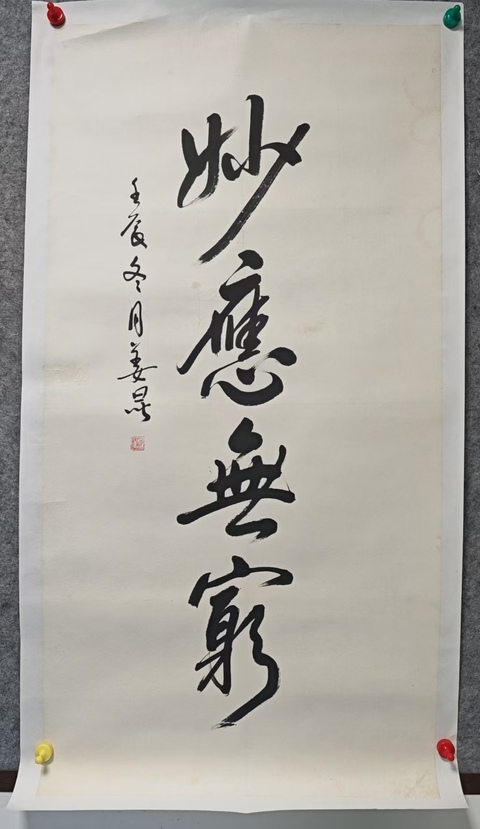 妙應無窮
壬辰冬月姜昆